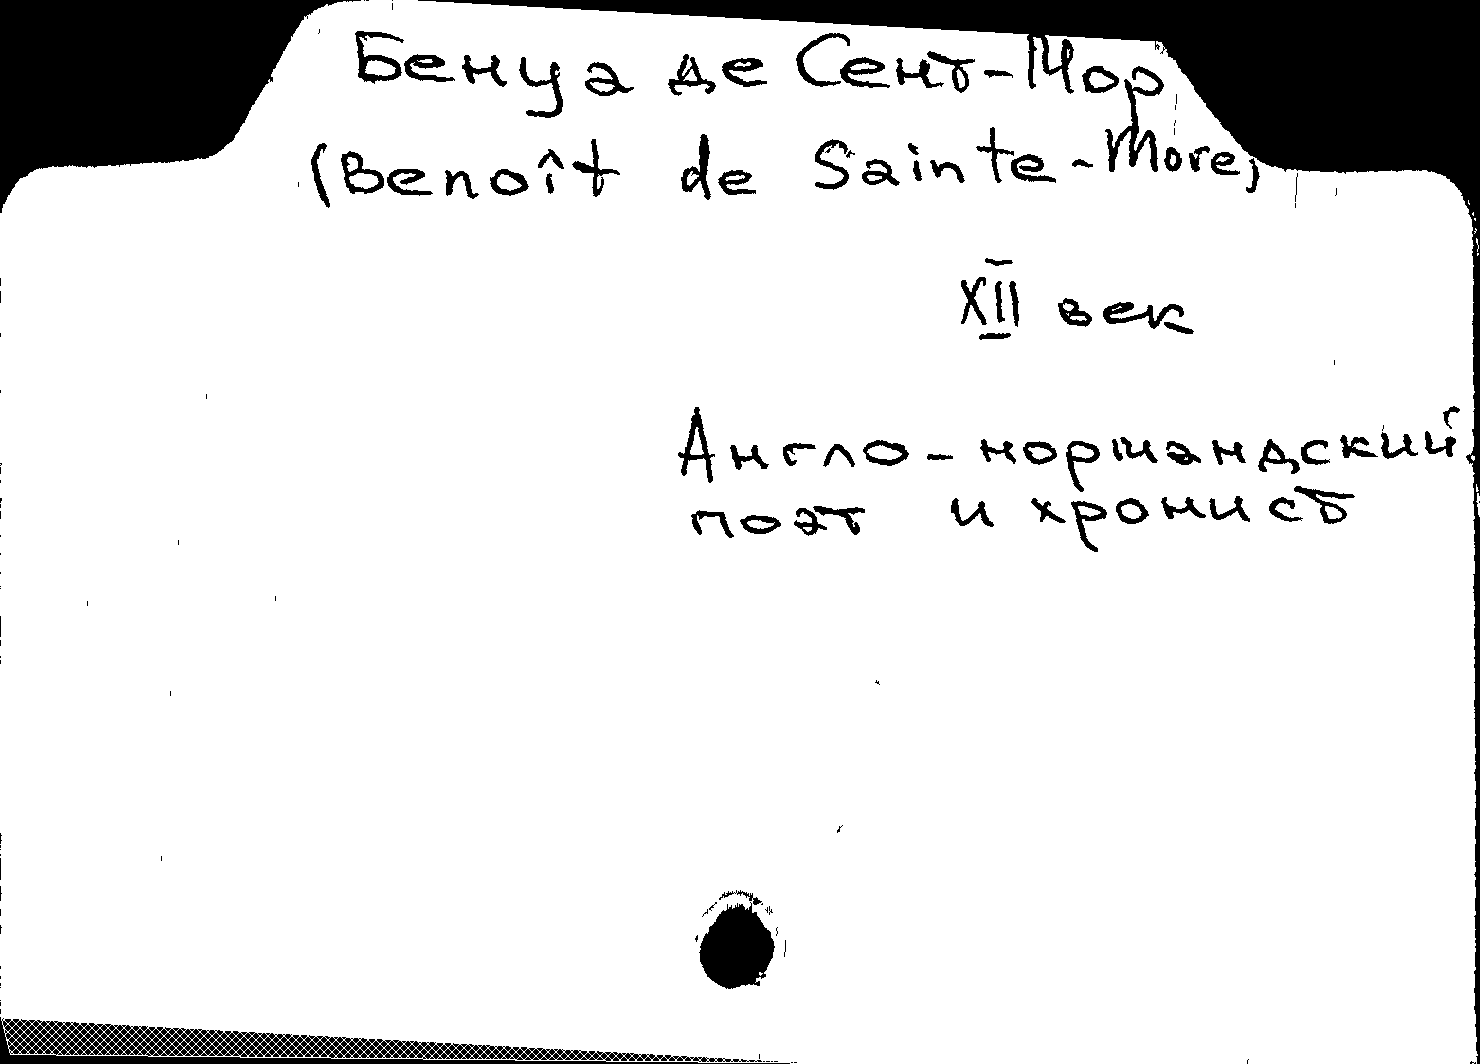 Бенуа де Сент-Мор
(Benoît de Sainte-More)
XII век
Англо-нормандский
поэт и хронист